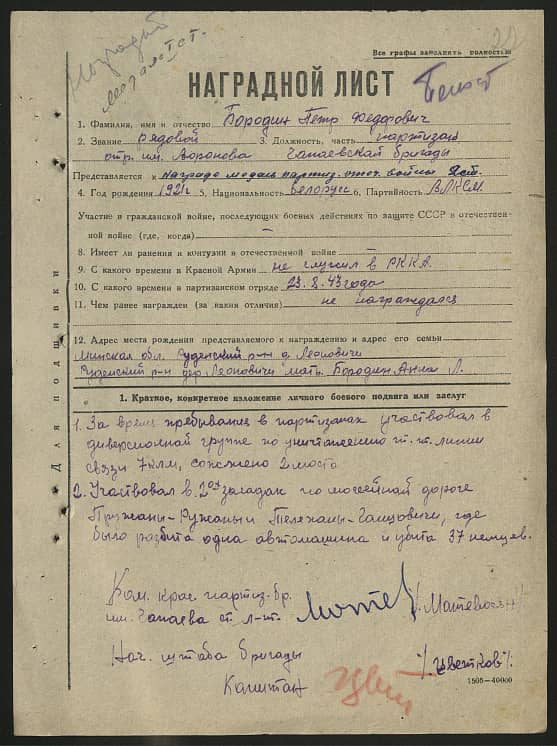 Наградить
Все графы заполнить полностью
НАГРАДНОЙ ЛИСТ
1. Фамилия, имя и отчество Бородин Петр Федорович
2. Звание рядовой 3. Должность, часть партизан
отр. им. Доронова Чапаевской бригады
Представляется к награде медаль партиз. отеч. войны 2ст.
4. Год рождения 1921г 5. Национальность белорусс 6. Партийность ВЛКСМ
Участие в гражданской войне, последующих боевых действиях по защите СССР в отечествен-
ной войне (где, когда) –
8. Имеет ли ранения и контузии в отечественной войне –
9. С какого времени в Красной Армии не служил в РККА
10. С какого времени в партизанском отряде 23.8.43 года
11. Чем ранее награжден (за какия отличия) не награждался
12. Адрес места рождения представляемого к награждению и адрес его семьи
Минская обл. Руденский р-н д. Леоновичи
Руденский р-н дер. Леоновичи мать Бородин Анна Л.
Для подшивки
1. Краткое, конкретное изложение личного боевого подвига или заслуг
1. За время пребывания в партизанах участвовал в
диверсионной группе по уничтожению т. т. линии
связи 7 клм, сожжено 2 моста
2. Участвовал в 2ох засадах по шоссейной дороге
Пружаны-Ружаны и Телеханы-Ганцовичи, где
было разбита одна автомашина и убита 37 немцев.
Ком. крас. партиз. бр.
им. Чапаева ст. л-т. /Матевосян/
Нач. штаба бригады
Капитан /Цветков/
1505—40000